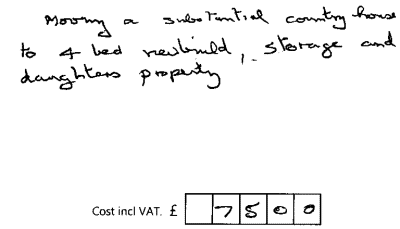 Moving a substantial country house
to 4 bed newbuild, storage and
daughters property
Cost incl VAT. £ 7500